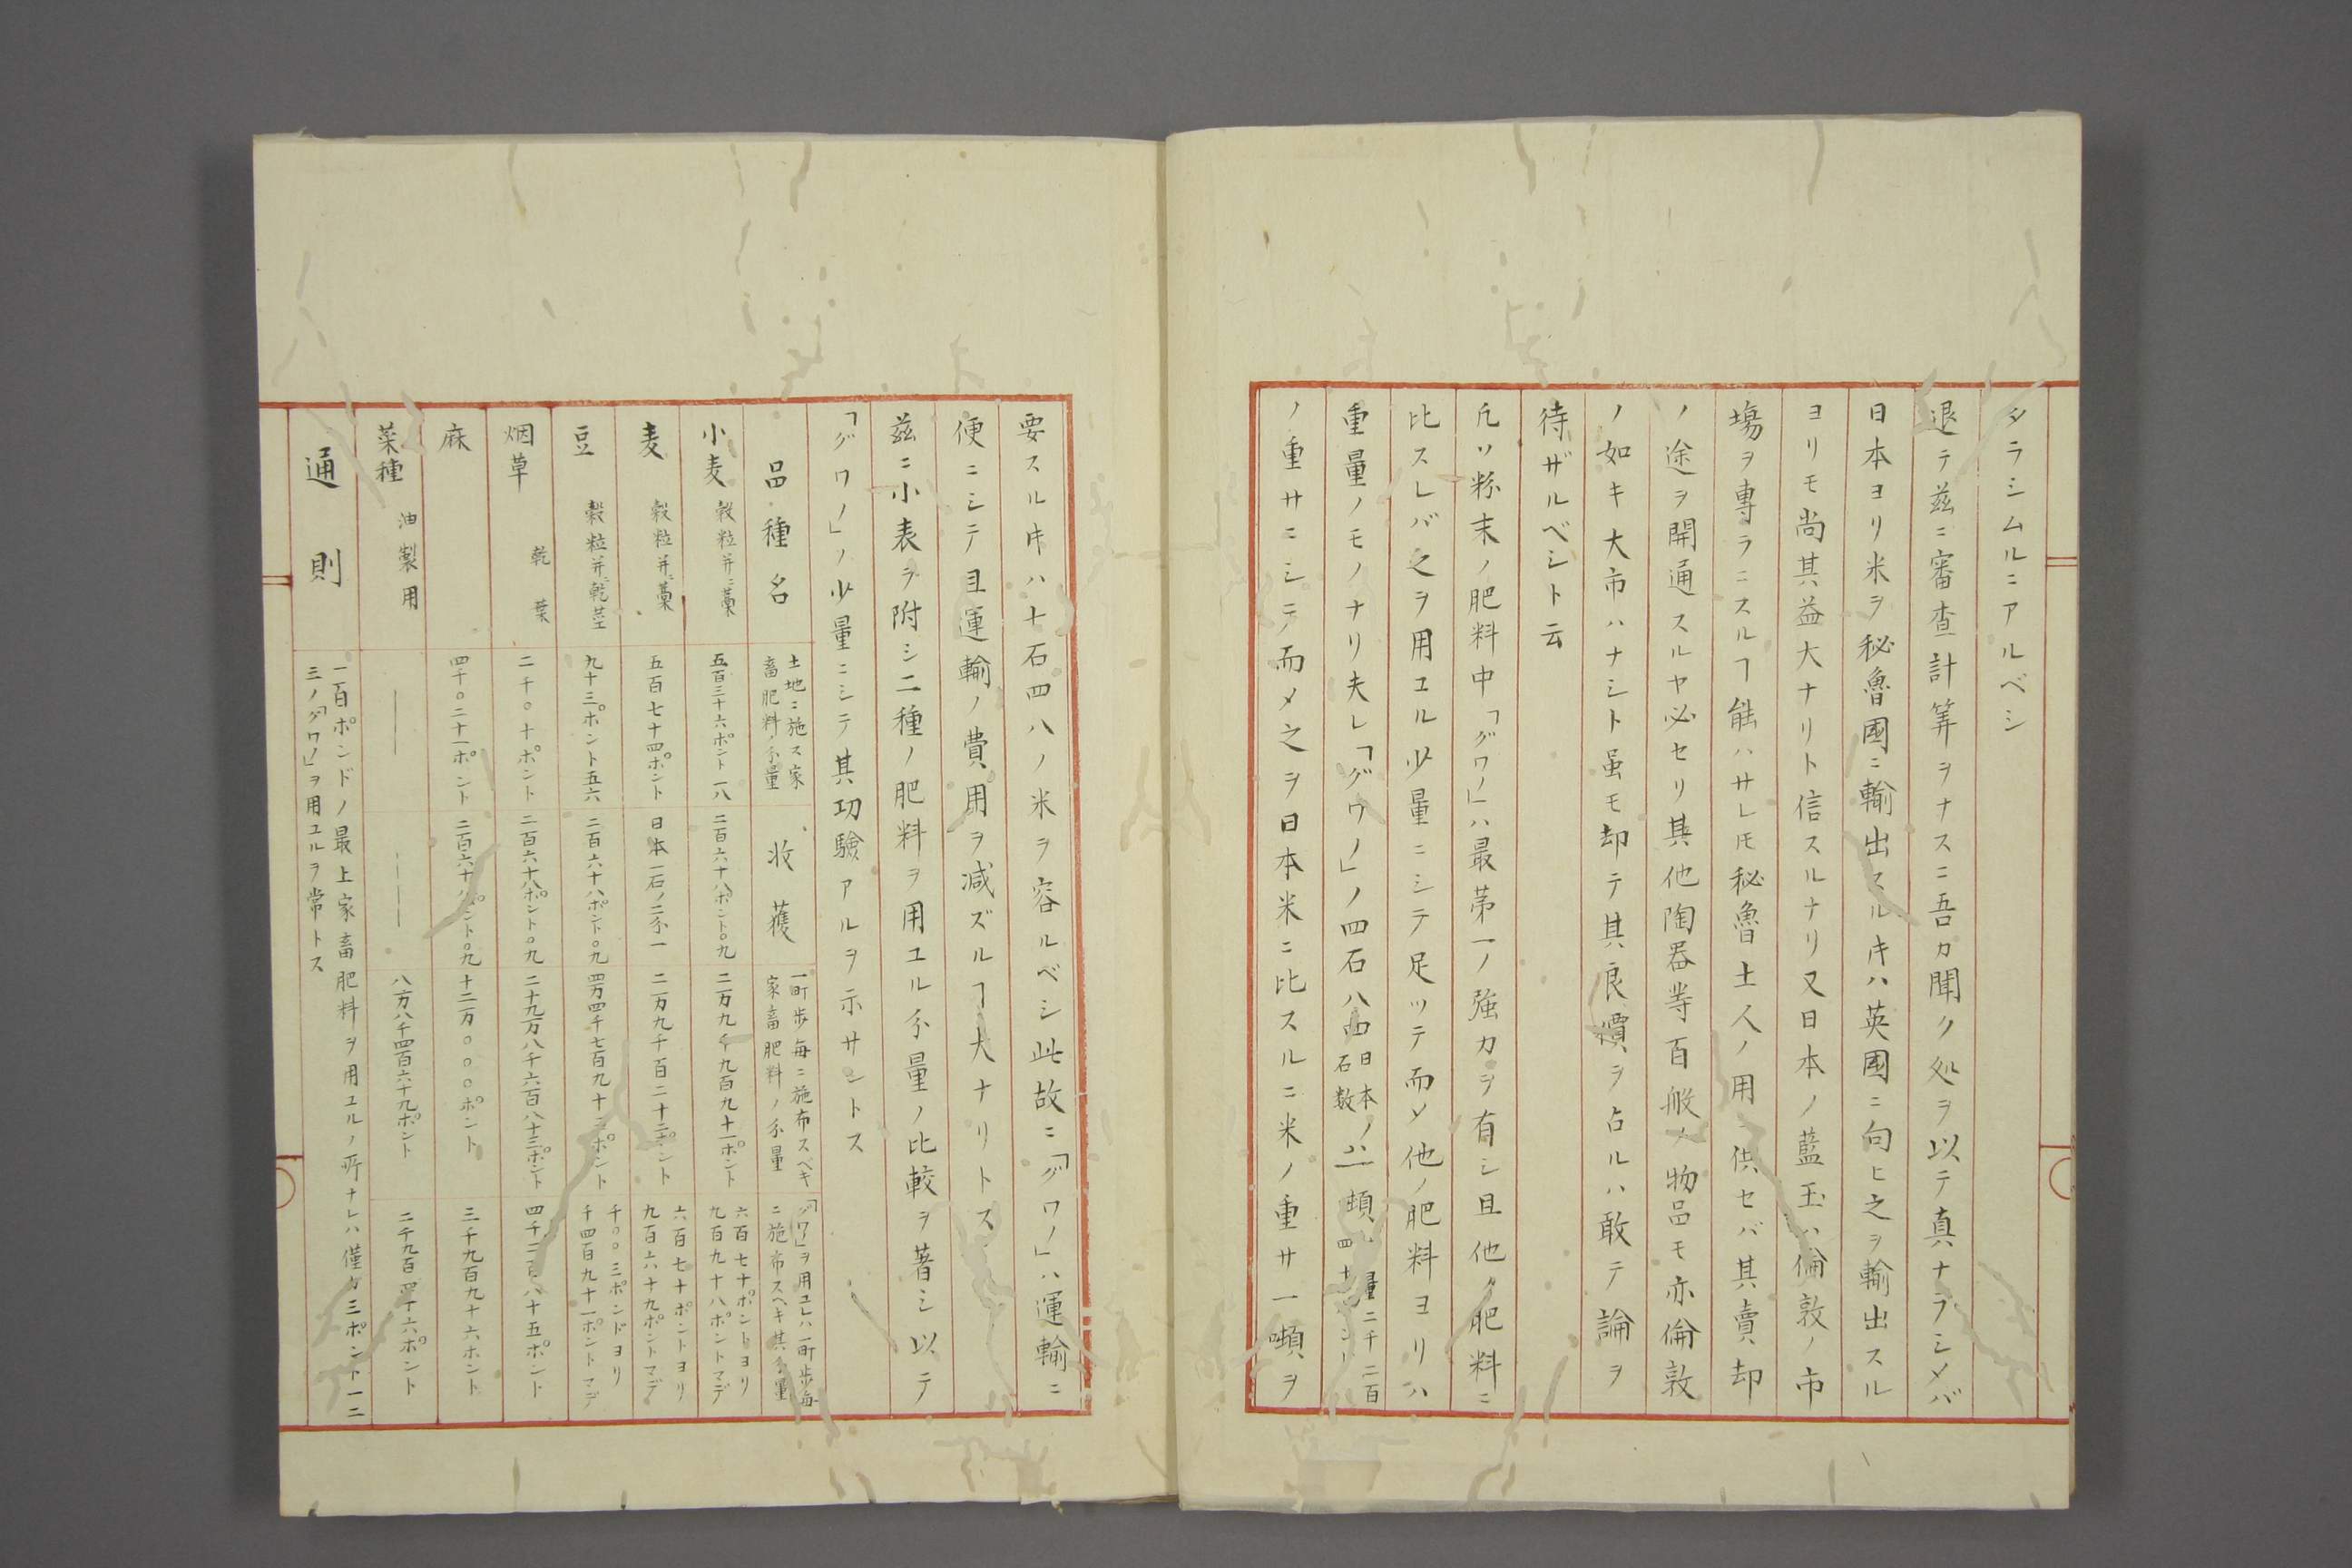 タラシムルニアルベシ
退テ茲ニ審査計筭ヲナスニ吾カ聞ク処ヲ以テ真ナラシメバ
日本ヨリ米ヲ秘魯國ニ輸出スルキハ英國ニ向ヒ之ヲ輸出スル
ヨリモ尚其益大ナリト信スルナリ又日本ノ藍玉ハ倫敦ノ市
塲ヲ專ラニスルヿ能ハサレ𪜈秘魯土人ノ用ニ供セバ其賣却
ノ途ヲ開通スルヤ必セリ其他陶器等百般ノ物品モ亦倫敦
ノ如キ大市ハナシト虽モ却テ其良價ヲ占ルハ敢テ論ヲ
待ザルベシト云
凢ソ粉末ノ肥料中「グワノ」ハ最第一ノ強力ヲ有シ且他ノ肥料ニ
比スレバ之ヲ用ユル少量ニシテ足ツテ而メ他ノ肥料ヨリハ
重量ノモノナリ夫レ「グウノ」ノ四石八四日本ノ石数ハ一噸量二千二百四十
ノ重サニシテ而メ之ヲ日本米ニ比スルニ米ノ重サ一噸ヲ
要スル𪜈ハ十石四八ノ米ヲ容ルベシ此故ニ「グワノ」ハ運輸ニ
便ニシテ且運輸ノ費用ヲ減ズルヿ大ナリトス
茲ニ小表ヲ附シ二種ノ肥料ヲ用ユル分量ノ比較ヲ著シ以テ
「グワノ」ノ少量ニシテ其功驗アルヲ示サントス
品種名 土地ニ施ス家畜肥料ノ分量 收獲 一町歩毎ニ施布スベキ家畜肥料ノ分量 「グワノ」ヲ用ユレハ一町歩毎ニ施布スヘキ其分量
小麦 穀粒并ニ藁 五百三十六ポント一八 二百六十八ポント〇九 二万九千九百九十一ポント 六百七十ポントヨリ九百九十八ポントマデ
麦 穀粒并ニ藁 五百七十四ポント 日本一石ノ二分一 二万九千百二十二ポント 六百七十ポントヨリ九百六十九ポントマデ
豆 穀粒并ニ乾茎 九十三ポント五六 二百六十八ポント〇九 四万四千七百九十二ポント 千〇〇三ポンドヨリ千四百九十一ポントマデ
烟草 乾葉 二千〇十ポント 二百六十八ポント〇九 二十九万八千六百八十三ポント 四千二百八十五ポント
麻 四千〇二十一ポント 二百六十八ポント〇九 十二万〇〇〇ポント 三千九百九十六ポント
菜種 油製用 八万八千四百六十九ポント 二千九百四十六ポント
通則 一百ポンドノ最上家畜肥料ヲ用ユルノ所ナレハ僅カ三ポント一二三ノ「グワノ」ヲ用ユルヲ常トス